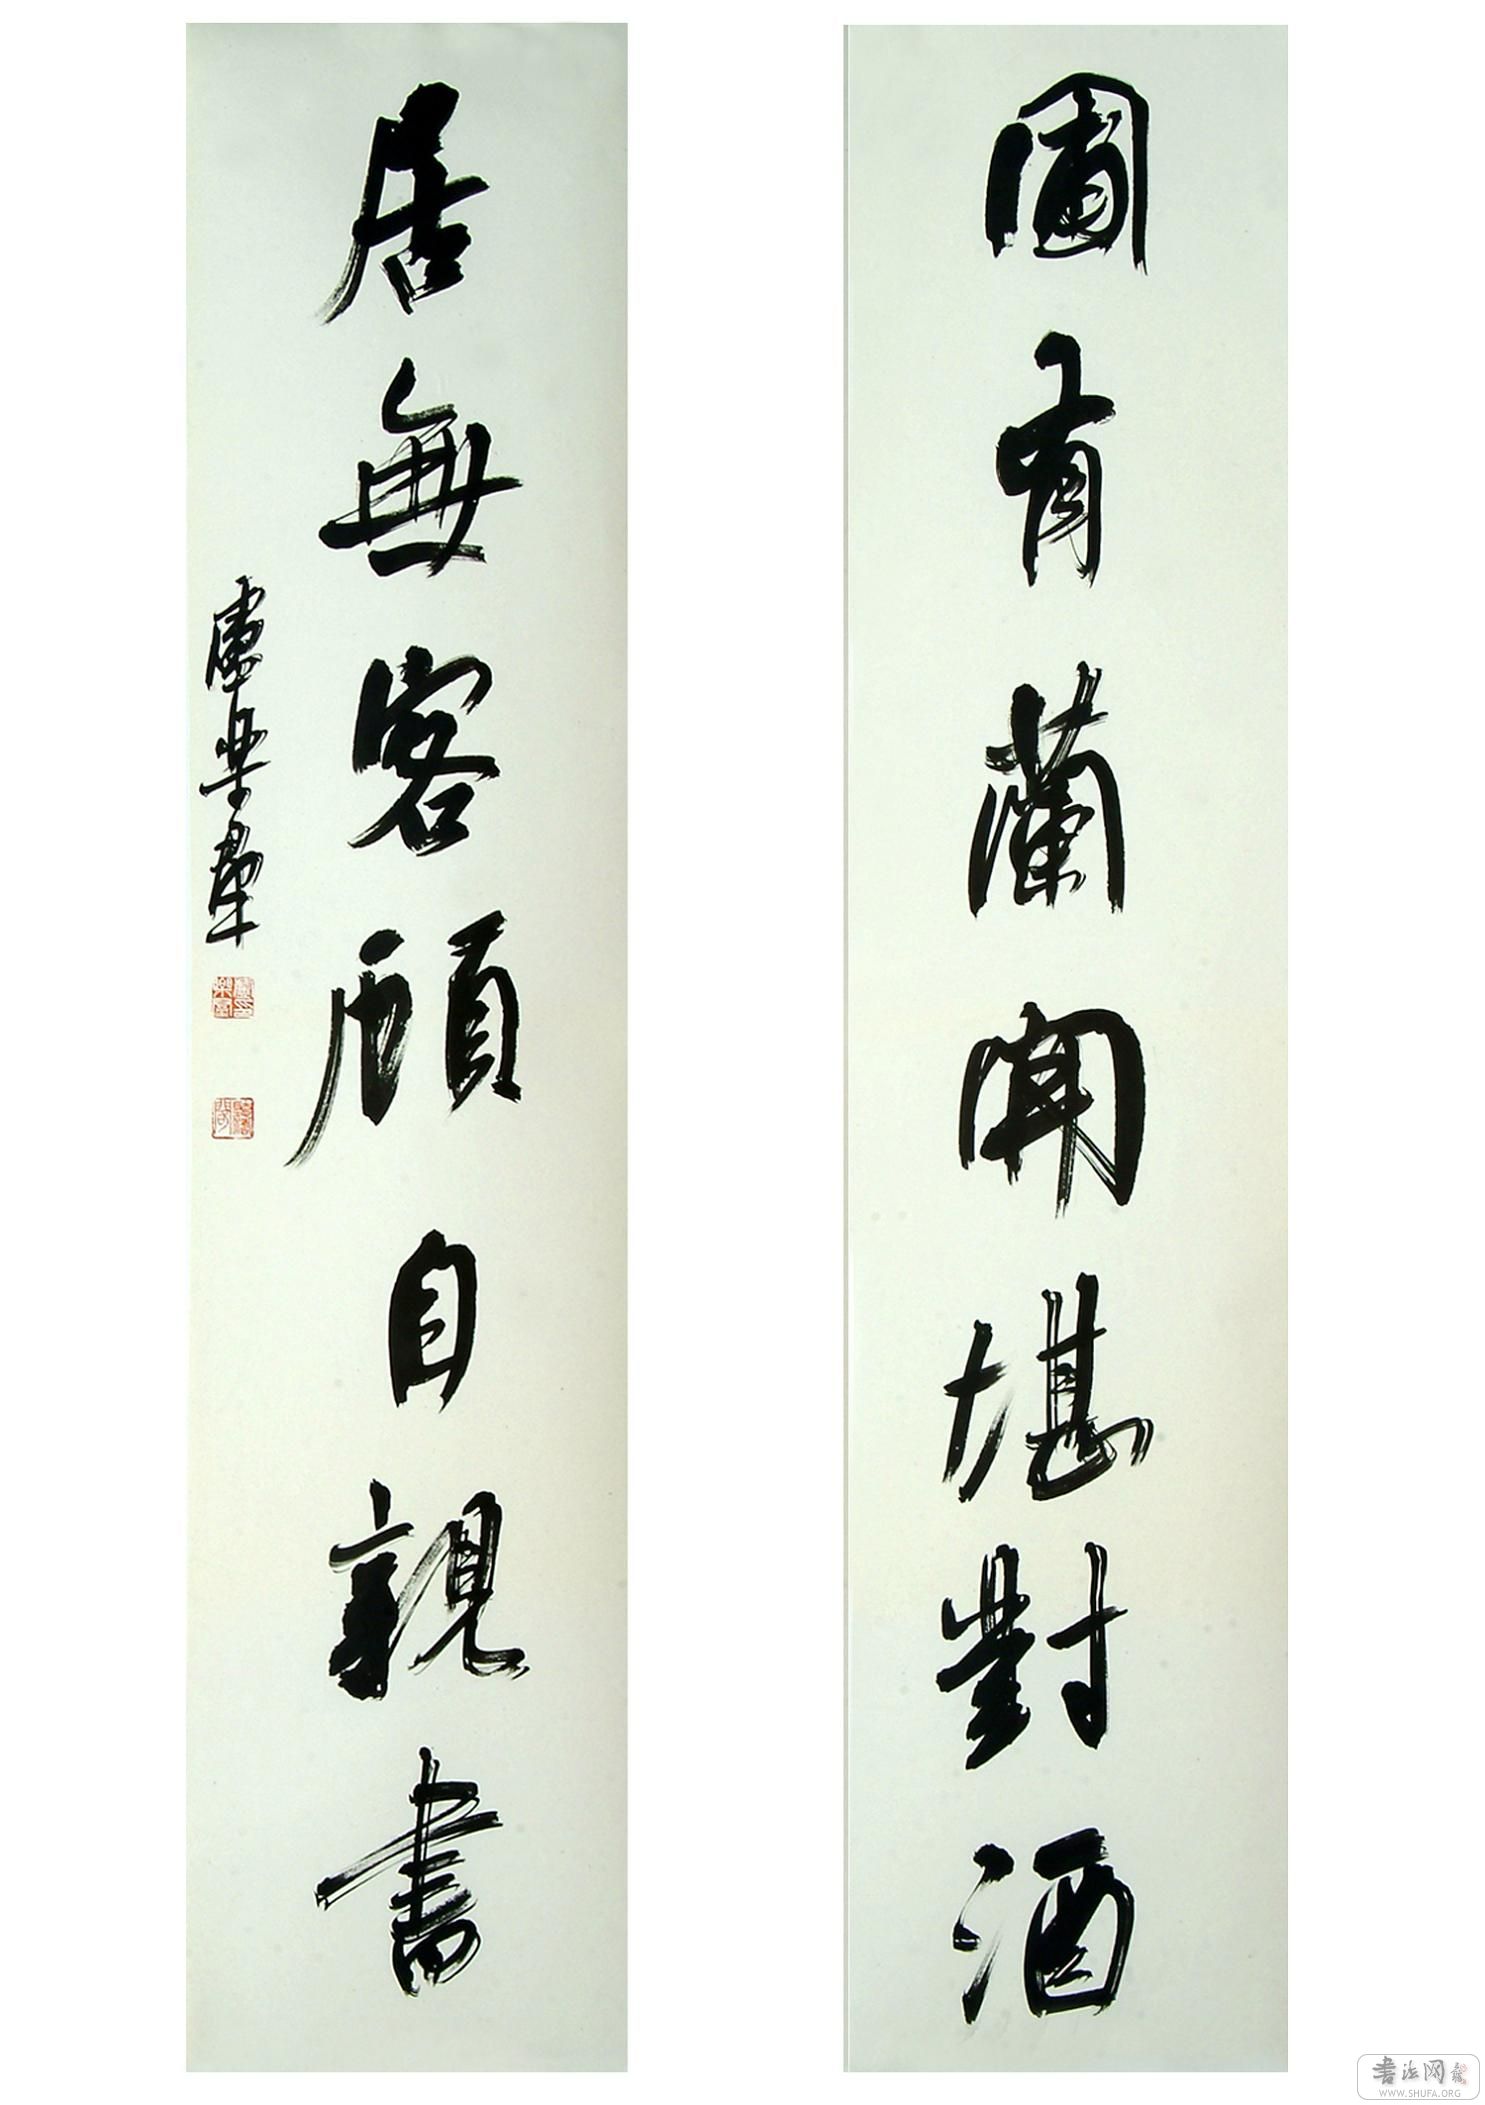 圃有蘭開堪對酒
居無客顧自親書
盧樂羣
書法网
WWW.SHUFA.ORG